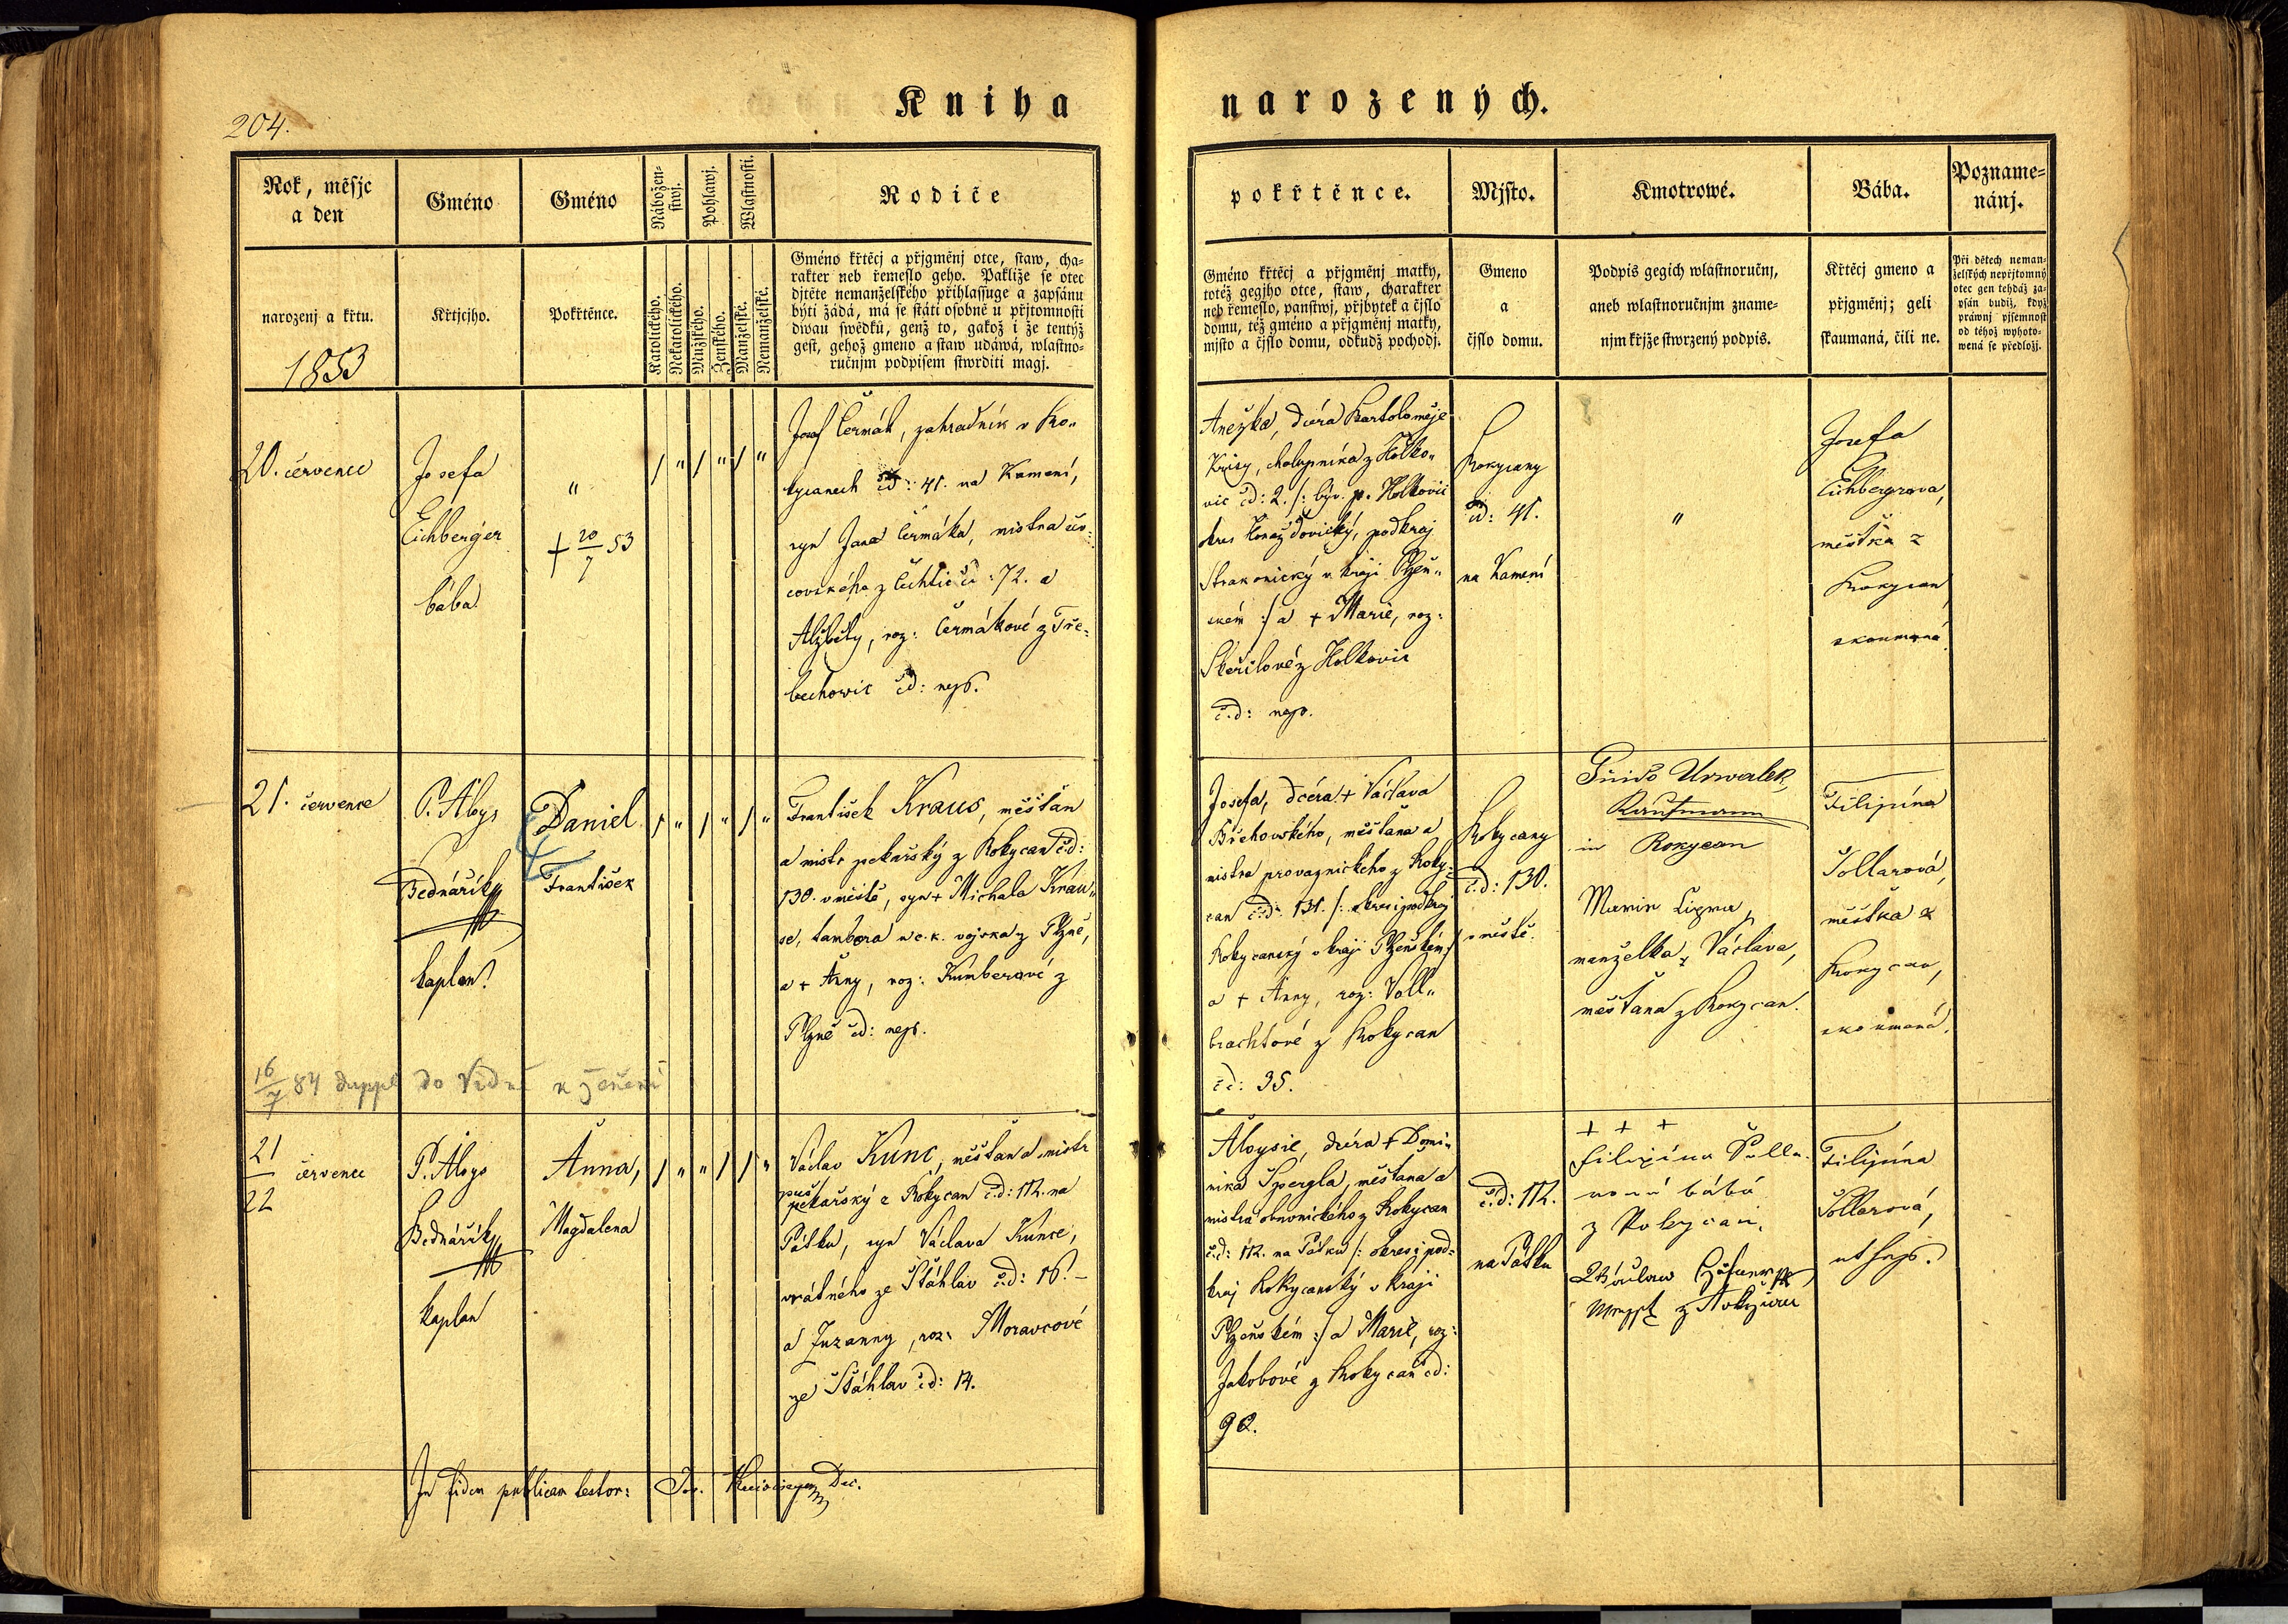 204.
Kniha
narozených.
Rok, měsjc
a den
Gméno
Gméno
Nábožen-
stwj.
Pohlawj.
Wlastnosti.
Rodiče
narozenj a křtu.
1853
Křtjcjho.
Pokřtěnce.
Katolického.
Nekatolického.
Mužského.
Ženského.
Manželské.
Nemanželské.
Gméno křtěcj a přjgměnj otce, staw, cha-
rakter neb řemeslo geho. Pakliže se otec
djtěte nemanželského přihlassuge a zapsánu
býti žádá, má se státi osobně u přjtomnosti
dwau swědků, genž to, gakož i že tentýž
gest, gehož gmeno a staw udáwá, wlastno-
ručnjm podpisem stwrditi magj.
pokřtěnce.
Mjsto.
Kmotrowé.
Bába.
Pozname-
nánj.
Gméno křtěcj a přjgměnj matky,
totéž gegjho otce, staw, charakter
neb řemeslo, panstwj, přjbytek a čjslo
domu, též gméno a přjgměnj matky,
mjsto a čjslo domu, odkudž pochodj.
Gmeno
a
čjslo domu.
Podpis gegich wlastnoručnj,
aneb wlastnoručnjm zname-
njm křjže stwrzený podpis.
Křtěcj gmeno a
přjgměnj; geli
skaumaná, čili ne.
Při dětech neman-
želských nepřjtomný
otec gen tehdáž za-
psán budiž, když
práwnj pjsemnost
od téhož wyhoto-
wená se předložj.
20. července
Josefa
Eichberger
bába
"
+ 20/7 53
/ " / " / "
Josef Čermák, zahradník v Ro„
kycanech čd: 41. na Kameni,
syn Jana Čermáka, mistra
čd: 72. a
Alžběty, roz: Čermákové z Tře„
bechowic čd: nejs.
Anežka, dcéra Bartoloměje
chalupníka z Holko„
vic čd: 2. /: býv. p. Holkovic
okres Horažďovický, podkraj
Strakonický v kraji Plzeň„
ském :/ a + Marie, roz:
z Holkovic
č.d: nejs.
Rokycany
čd: 41.
na Kameni
"
Josefa
Eichbergrova,
městka z
Rokycan
zkoumaná
21. července
P. Aloys
Bednářík
kaplan
Daniel
František
/ " / " / "
František Kraus, měšťan
a mistr pekařský z Rokycan č.d:
130. v městě, syn + Michala Krau„
se, tambora u c. k. vojska z Plzně,
a + Anny, roz: Kumberové z
Plzně čd: nejs.
Josefa, dcéra + Václava
Břehovského, měšťana a
mistra provaznického z Roky„
can čd: 131. /: okres i podkraj
Rokycanský v kraji Plzeňském :/
a + Anny, roz: Voll„
brachtové z Rokycan
čd: 35.
Rokycany
č.d: 130.
v městě.
Guido Urwalek,
Kaufmann
in Rokycan
Marie
manželka Václava,
měšťana z Rokycan.
Filipína
Sollarová,
městka z
Rokycan,
zkoumaná.
16/7 84 duppl do Vídně k ženění
21/22 července
P. Aloys
Bednářík
kaplan
Anna,
Magdalena
/ " " / / "
Václav Kunc, měšťan a mistr
pekařský z Rokycan č.d: 112. na
Pátku, syn Václava Kunce,
vrátného ze Šťáhlav č.d: 16. –
a Zuzanny, roz: Moravcové
ze Šťáhlav čd: 14.
Aloysie, dcéra + Domi„
nika Špergla, měšťana a
mistra obuvnického z Rokycan
č.d: 112. na Pátku /: okres i pod„
kraj Rokycanský v kraji
Plzeňském :/ a Marie, roz:
Jakobové z Rokycan čd:
92.
č.d: 112.
na Pátku
+ + +
Filipína Solla„
rová bába
z Rokycan.
Filipína
Sollarová,
ut supr.
In fidem publicam testor: Jos. Dec.